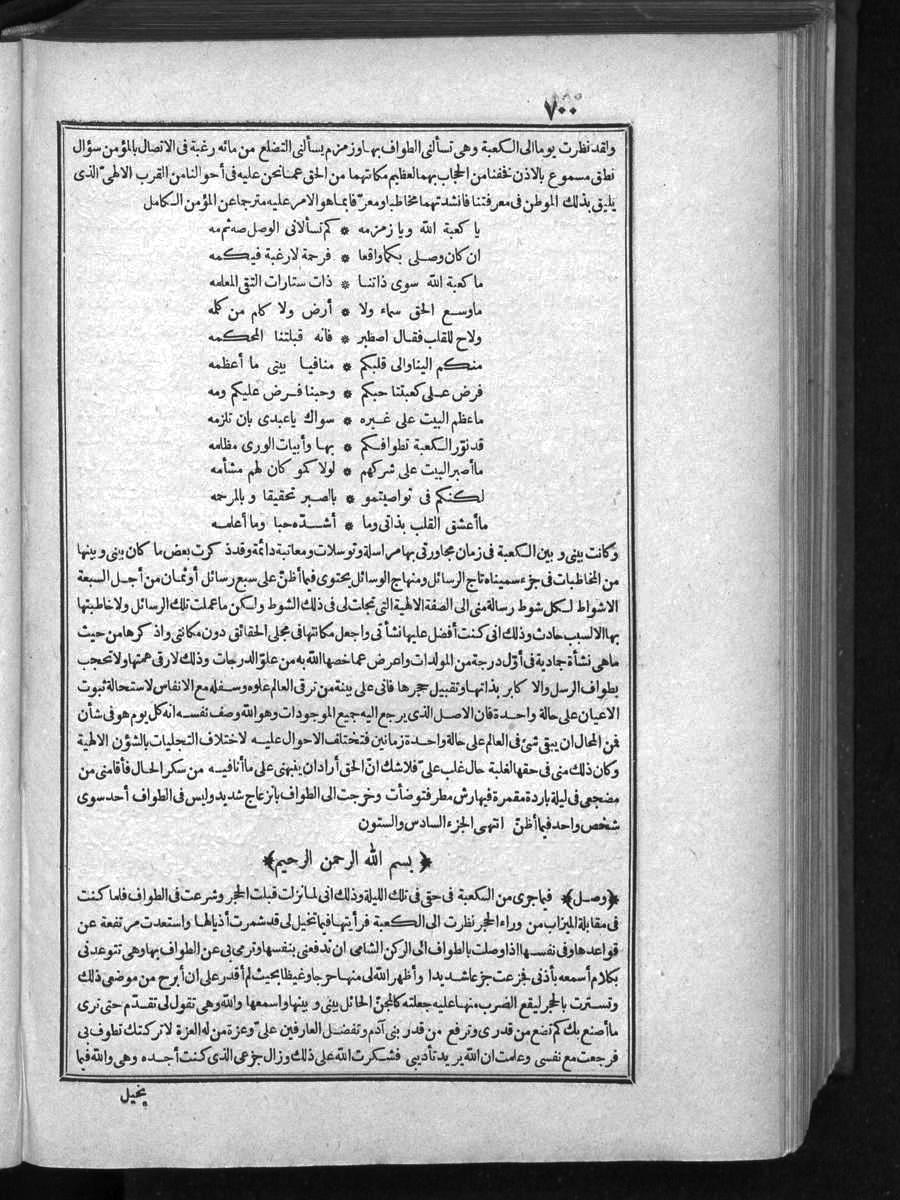 ٧٠٠
ولقد نظرت يوما الى الكعبة وهي تسألني الطواف بها وزمزم يسألني التضلع من مائه رغبة في الاتصال بالمؤمن سؤال
نطق مسموع بالاذن نخفنا من الحجاب بهما لعظيم مكانتهما من الحق عما نحن عليه في أحوالنا من القرب الالهيّ الذي
يليق بذلك الموطن في معرفتنا فانشدتهما مخاطبا ومعرّفا بما هو الامر عليه مترجما عن المؤمن الكامل
يا كعبة الله ويا زمزمه * كم تسألاني الوصل صه ثم مه
ان كان وصلي بكما واقعا * فرحمة لا رغبة فيكمه
ما كعبة الله سوى ذاتنا * ذات ستارات التقى المعلمه
ما وسع الحق سماء ولا * أرض ولا كلم من كلمه
ولاح للقلب فقال اصطبر * فانه قبلتنا المحكمه
منكم الينا والى قلبكم * منا فيا بيتي ما أعظمه
فرض على كعبتنا حبكم * وحبنا فرض عليكم ومه
ما عظم البيت على غيره * سواك يا عبدي بان تلزمه
قد نوّر الكعبة تطوافكم * بها وأبيات الورى مظلمه
ما أصبر البيت على شركهم * لولاكمو كان لهم مشأمه
لكنكم في تواصيتمو * بالصبر تحقيقا وبالمرحمه
ما أعشق القلب بذاتي وما * أشدّه حبا وما أعلمه
وكانت بيني وبين الكعبة في زمان مجاورتي بها مراسلة وتوسلات ومعاتبة دائمة وقد ذكرت بعض ما كان بيني وبينها
من المخاطبات في جزء سميناه تاج الرسائل ومنهاج الوسائل يحتوي فيما أظنّ على سبع رسائل أو ثمان من أجل السبعة
الاشواط لكل شوط رسالة مني الى الصفة الالهية التي تجلت لي في ذلك الشوط ولكن ما عملت تلك الرسائل ولا خاطبتها
بها الا لسبب حادث وذلك اني كنت أفضل عليها نشأتي واجعل مكانتها في مجلى الحقائق دون مكانتي واذكرها من حيث
ما هي نشأة جمادية في أوّل درجة من المولدات واعرض عما خصها الله به من علوّ الدرجات وذلك لارقي همتها ولا تحجب
بطواف الرسل والاكابر بذاتها وتقبيل حجرها فاني على بينة من ترقي العالم علوه وسفله مع الانفاس لاستحالة ثبوت
الاعيان على حالة واحدة فان الاصل الذي يرجع اليه جميع الموجودات وهو الله وصف نفسه انه كل يوم هو في شأن
فمن المحال ان يبقى شئ في العالم على حالة واحدة زمانين فتختلف الاحوال عليه لاختلاف التجليات بالشؤن الالهية
وكان ذلك مني في حقها لغلبة حال غلب عليّ فلا شك انّ الحق أراد ان ينبهني على ما أنا فيه من سكر الحال فأقامني من
مضجعي في ليلة باردة مقمرة فيها رش مطر فتوضأت وخرجت الى الطواف بانزعاج شديد وليس في الطواف أحد سوى
شخص واحد فيما أظنّ انتهى الجزء السادس والستون
﴿بسم الله الرحمن الرحيم﴾
﴿وصل﴾ فيما جرى من الكعبة في حقي في تلك الليلة وذلك اني لما نزلت قبلت الحجر وشرعت في الطواف فلما كنت
في مقابلة الميزاب من وراء الحجر نظرت الى الكعبة فرأيتها فيما تخيل لي قد شمرت أذيالها واستعدت مرتفعة عن
قواعدها وفي نفسها اذا وصلت بالطواف الى الركن الشامي ان تدفعني بنفسها وترمي بي عن الطواف بها وهي تتوعدني
بكلام أسمعه بأذني فجزعت جزعا شديدا وأظهر الله لي منها حرجا وغيظا بحيث لم أقدر على ان أبرح من موضعي ذلك
وتسترت بالحجر ليقع الضرب منها عليه جعلته كالمجنّ الحائل بيني وبينها واسمعها والله وهي تقول لي تقدّم حتى ترى
ما أصنع بك كم تضع من قدري وترفع من قدر بني آدم وتفضل العارفين عليّ وعزة من له العزة لا تركتك تطوف بي
فرجعت مع نفسي وعلمت ان الله يريد تأديبي فشكرت الله على ذلك وزال جزعي الذي كنت أجده وهي والله فيما
يخيل